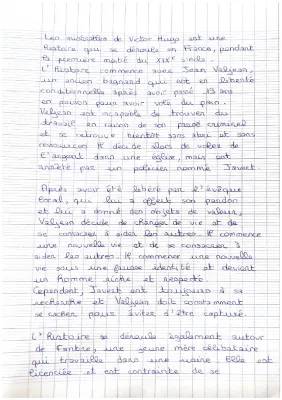 Les misérables de Victor Hugo est une
histoire qui se déroule en France, pendant
la première moitié du XIXe siècle.
L'histoire commence avec Jean Valjean,
un ancien bagnard qui est en liberté
conditionnelle après avoir passé 19 ans
en prison pour avoir volé du pain.
Valjean est incapable de trouver du
travail en raison de son passé criminel
et se retrouve bientôt sans abri et sans
ressources. Il décide alors de voler de
l'argent dans une église, mais est
arrêté par un policier nommé Javert.
Après avoir été libéré par l'évêque
local, qui lui a offert son pardon
et lui a donné des objets de valeur,
Valjean décide de changer de vie et de
se consacrer à aider les autres. Il commence
une nouvelle vie et de se consacrer à
aider les autres. Il commence une nouvelle
vie sous une fausse identité et devient
un homme riche et respecté.
Cependant Javert est toujours à sa
recherche et Valjean doit constamment
se cacher pour éviter d'être capturé.
L'histoire se déroule également autour
de Fantine, une jeune mère célibataire
qui travaille dans une usine. Elle est
licenciée et est contrainte de se